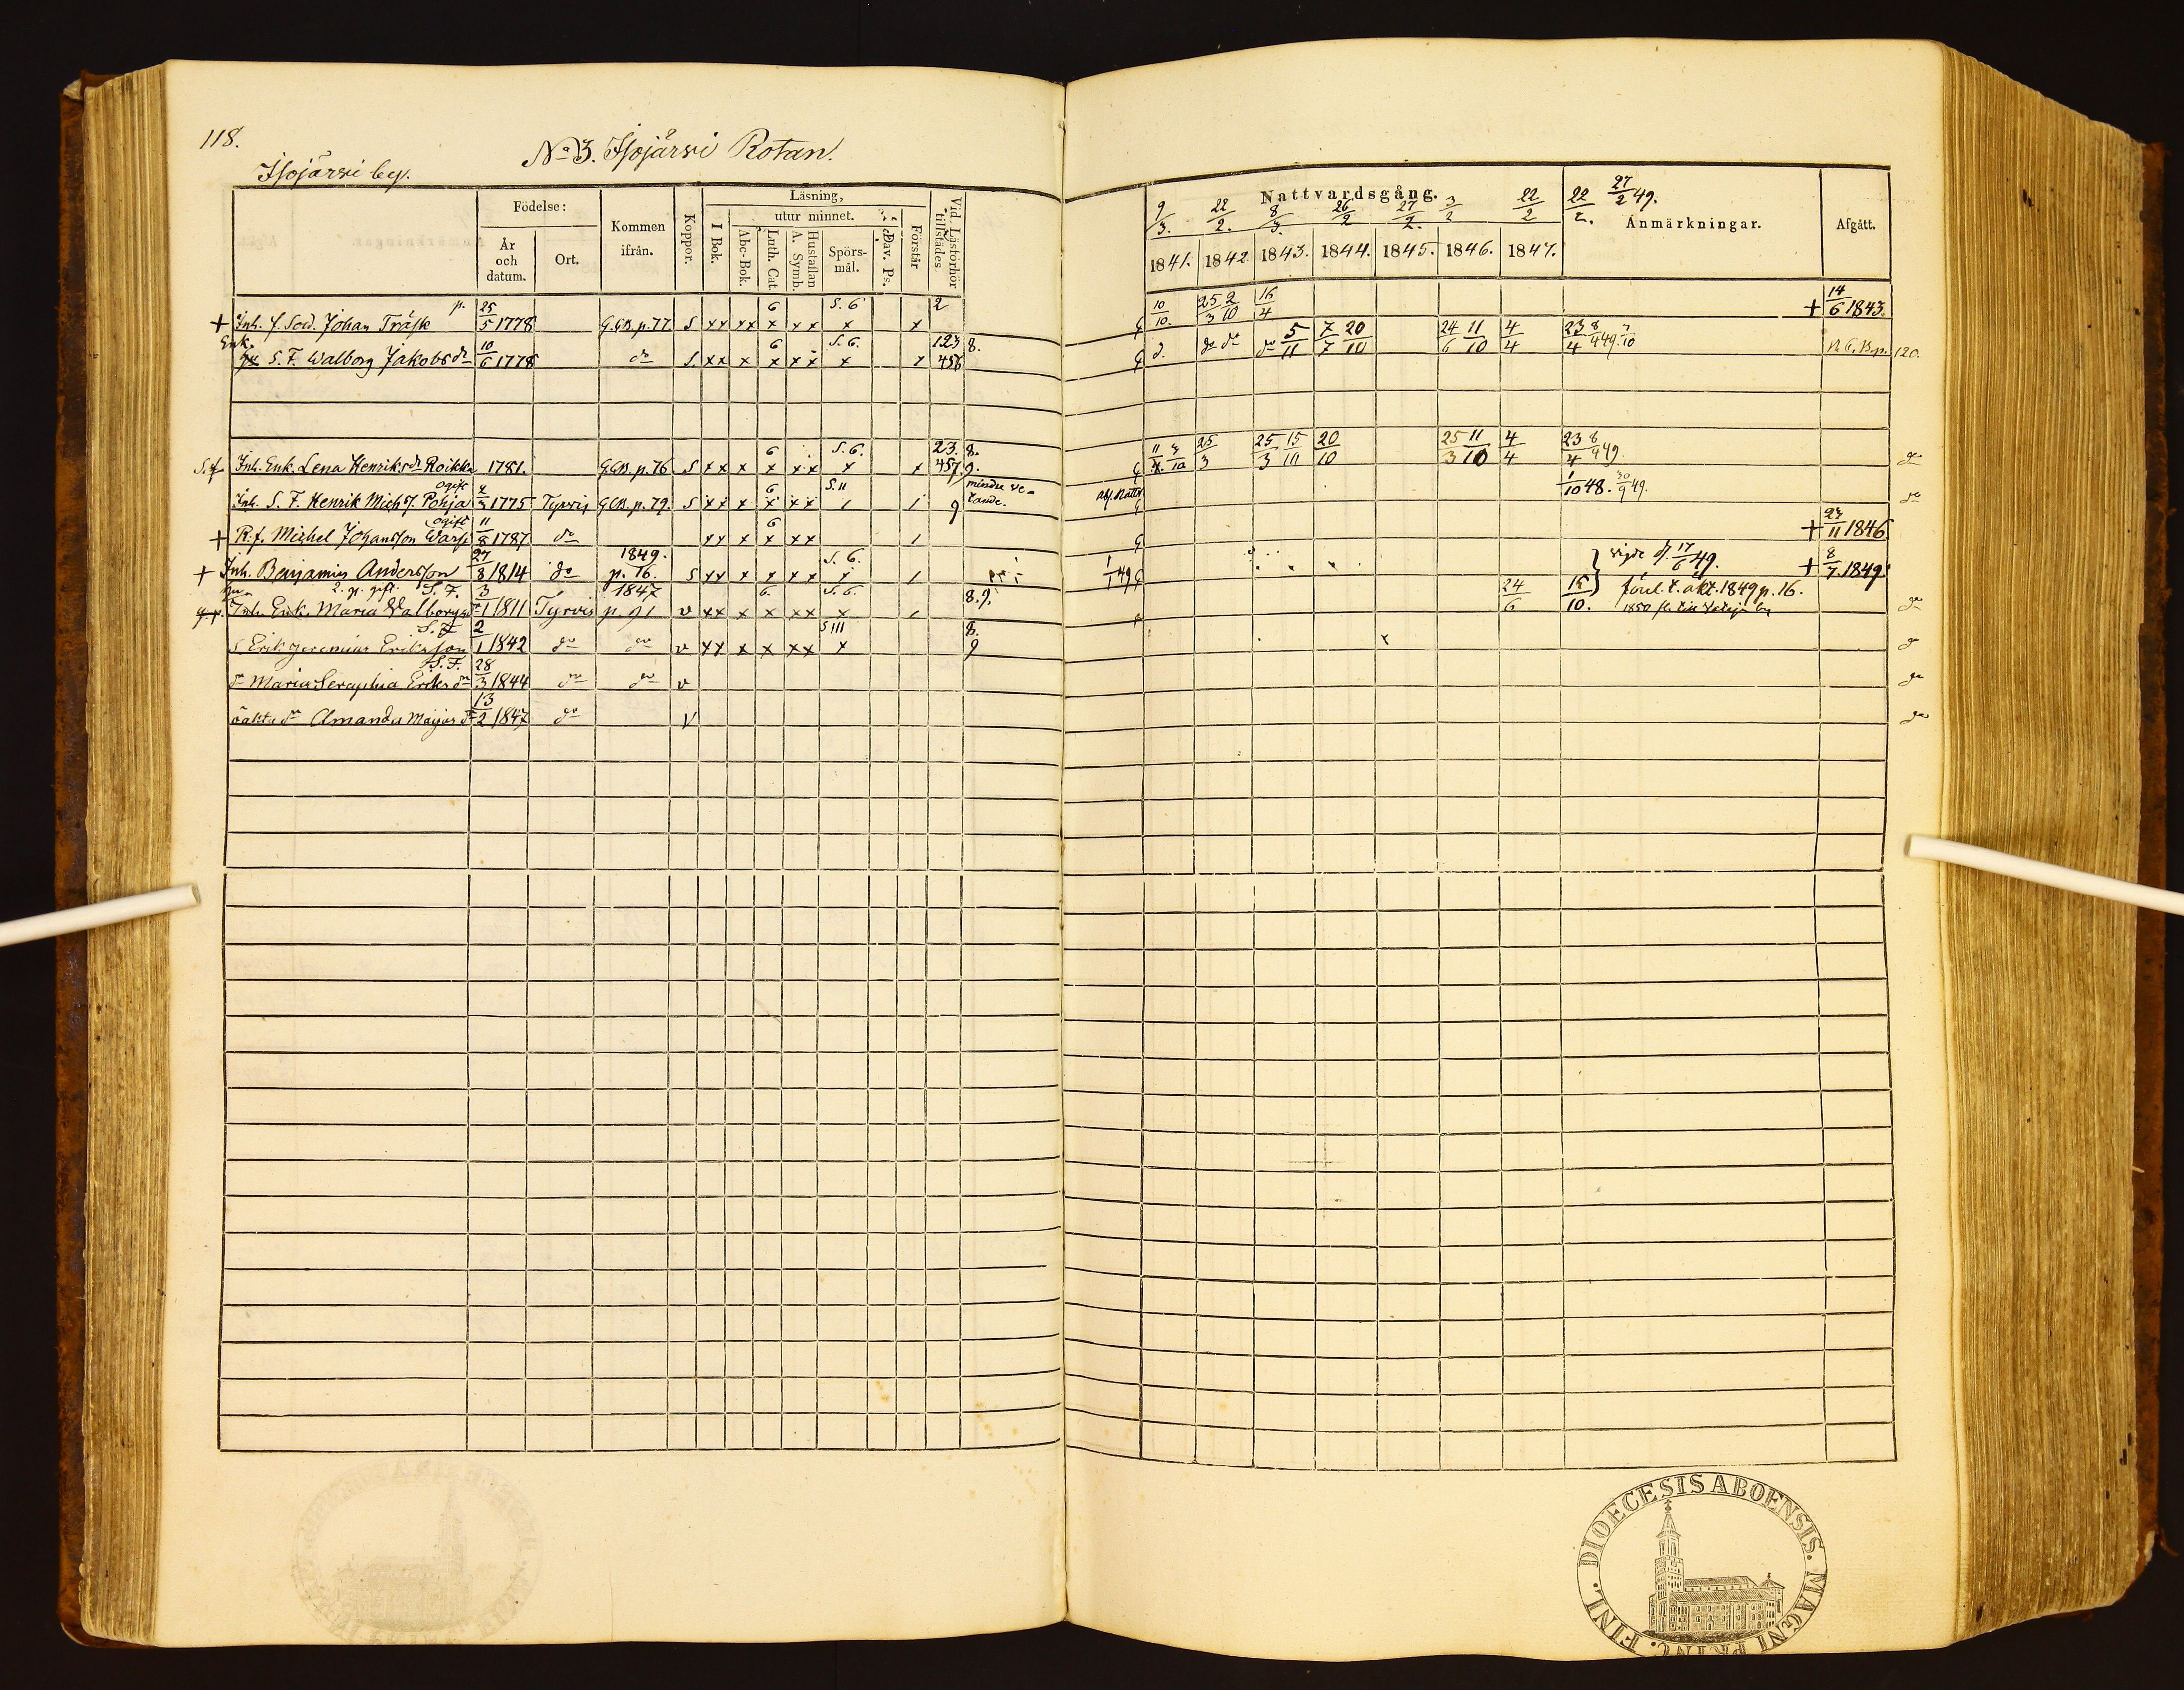 118.
No 3. Isojärvi Rotan.
Isojärvi by.
Födelse:
År och datum.
Ort.
Kommen ifrån.
Koppor.
Läsning,
I Bok.
utur minnet.
Abc-Bok.
Luth. Cat.
Hustaflan A. Symb.
Spörs-mål.
Dav. Ps.
Förstår
Vid Läsförhör tillstädes
Nattvardsgång.
9/3. 22/2. 8/3. 26/2 27/2. 3/2 22/2 22/2. 27/2 49.
1841. 1842. 1843. 1844. 1845. 1846. 1847.
Anmärkningar.
Afgått.
+ Inh. f. Sold. Johan Träsk p. 25/5 1778 G.C.B. p. 77 S xx xx 6 x x x S. 6 x x 2 10/10. 25/3 2/10 16/4 + 14/6 1843.
Enk. S. F. Walborg Jakobs dr 10/6 1778 do S. xx x 6 x x x S. 6. x x 123 456 8. d. do do do 5/11 7/7 20/10 24/6 11/10 4/4 23/4 8/4 49. 7/10 N.C.B. p. 120.
S. f. Inh. Enk. Lena Henriks dr Roikka 1781. G.C.B. p. 76 S xx x 6 x xx S. 6. x x 23. 457. 8. 9. 25/3 25/3 15/11 20/10 25/3 11/10 4/4 23/4 8/4 49. do
Inh. S. F. Henrik Mich. s. Pohja ogift 1775 Tyrvis G.C.B. p. 79. S xx x 6 x xx S. 11 9 mindre vetande. 1/10 48. 30/9 49. do
+ R. f. Michel Johansson Warf ogift 11/8 1787 do xx x 6 x xx + 23/11 1846.
+ Inh. Benjamin Andersson 27/8 1814 do 1849. p. 16. S xx x x x x S. 6. x 1/1 49 vigde d. 17/6 49. + 8/7. 1849.
2. g. gift S. F.
Inh. Enk. Maria Walborg 3/1 1811 Tyrvis 1847 p. 91 v xx x 6. x xx S. 6. x 8. 9. 24/6 15/10. förel. t. äkt. 1849 p. 16. do
1850 fl. till
S. F.
S Erik Jeremias Eriksson 2/1 1842 do do v xx x x xx S III x 8. 9 do
S. F.
dr Maria Seraphia Eriks dr 28/3 1844 do do v do
oäkta dr Amanda Majas dr 13/2 1847 do v do
DIOECESIS ABOENSIS. MAGNI PRINC. FINL.